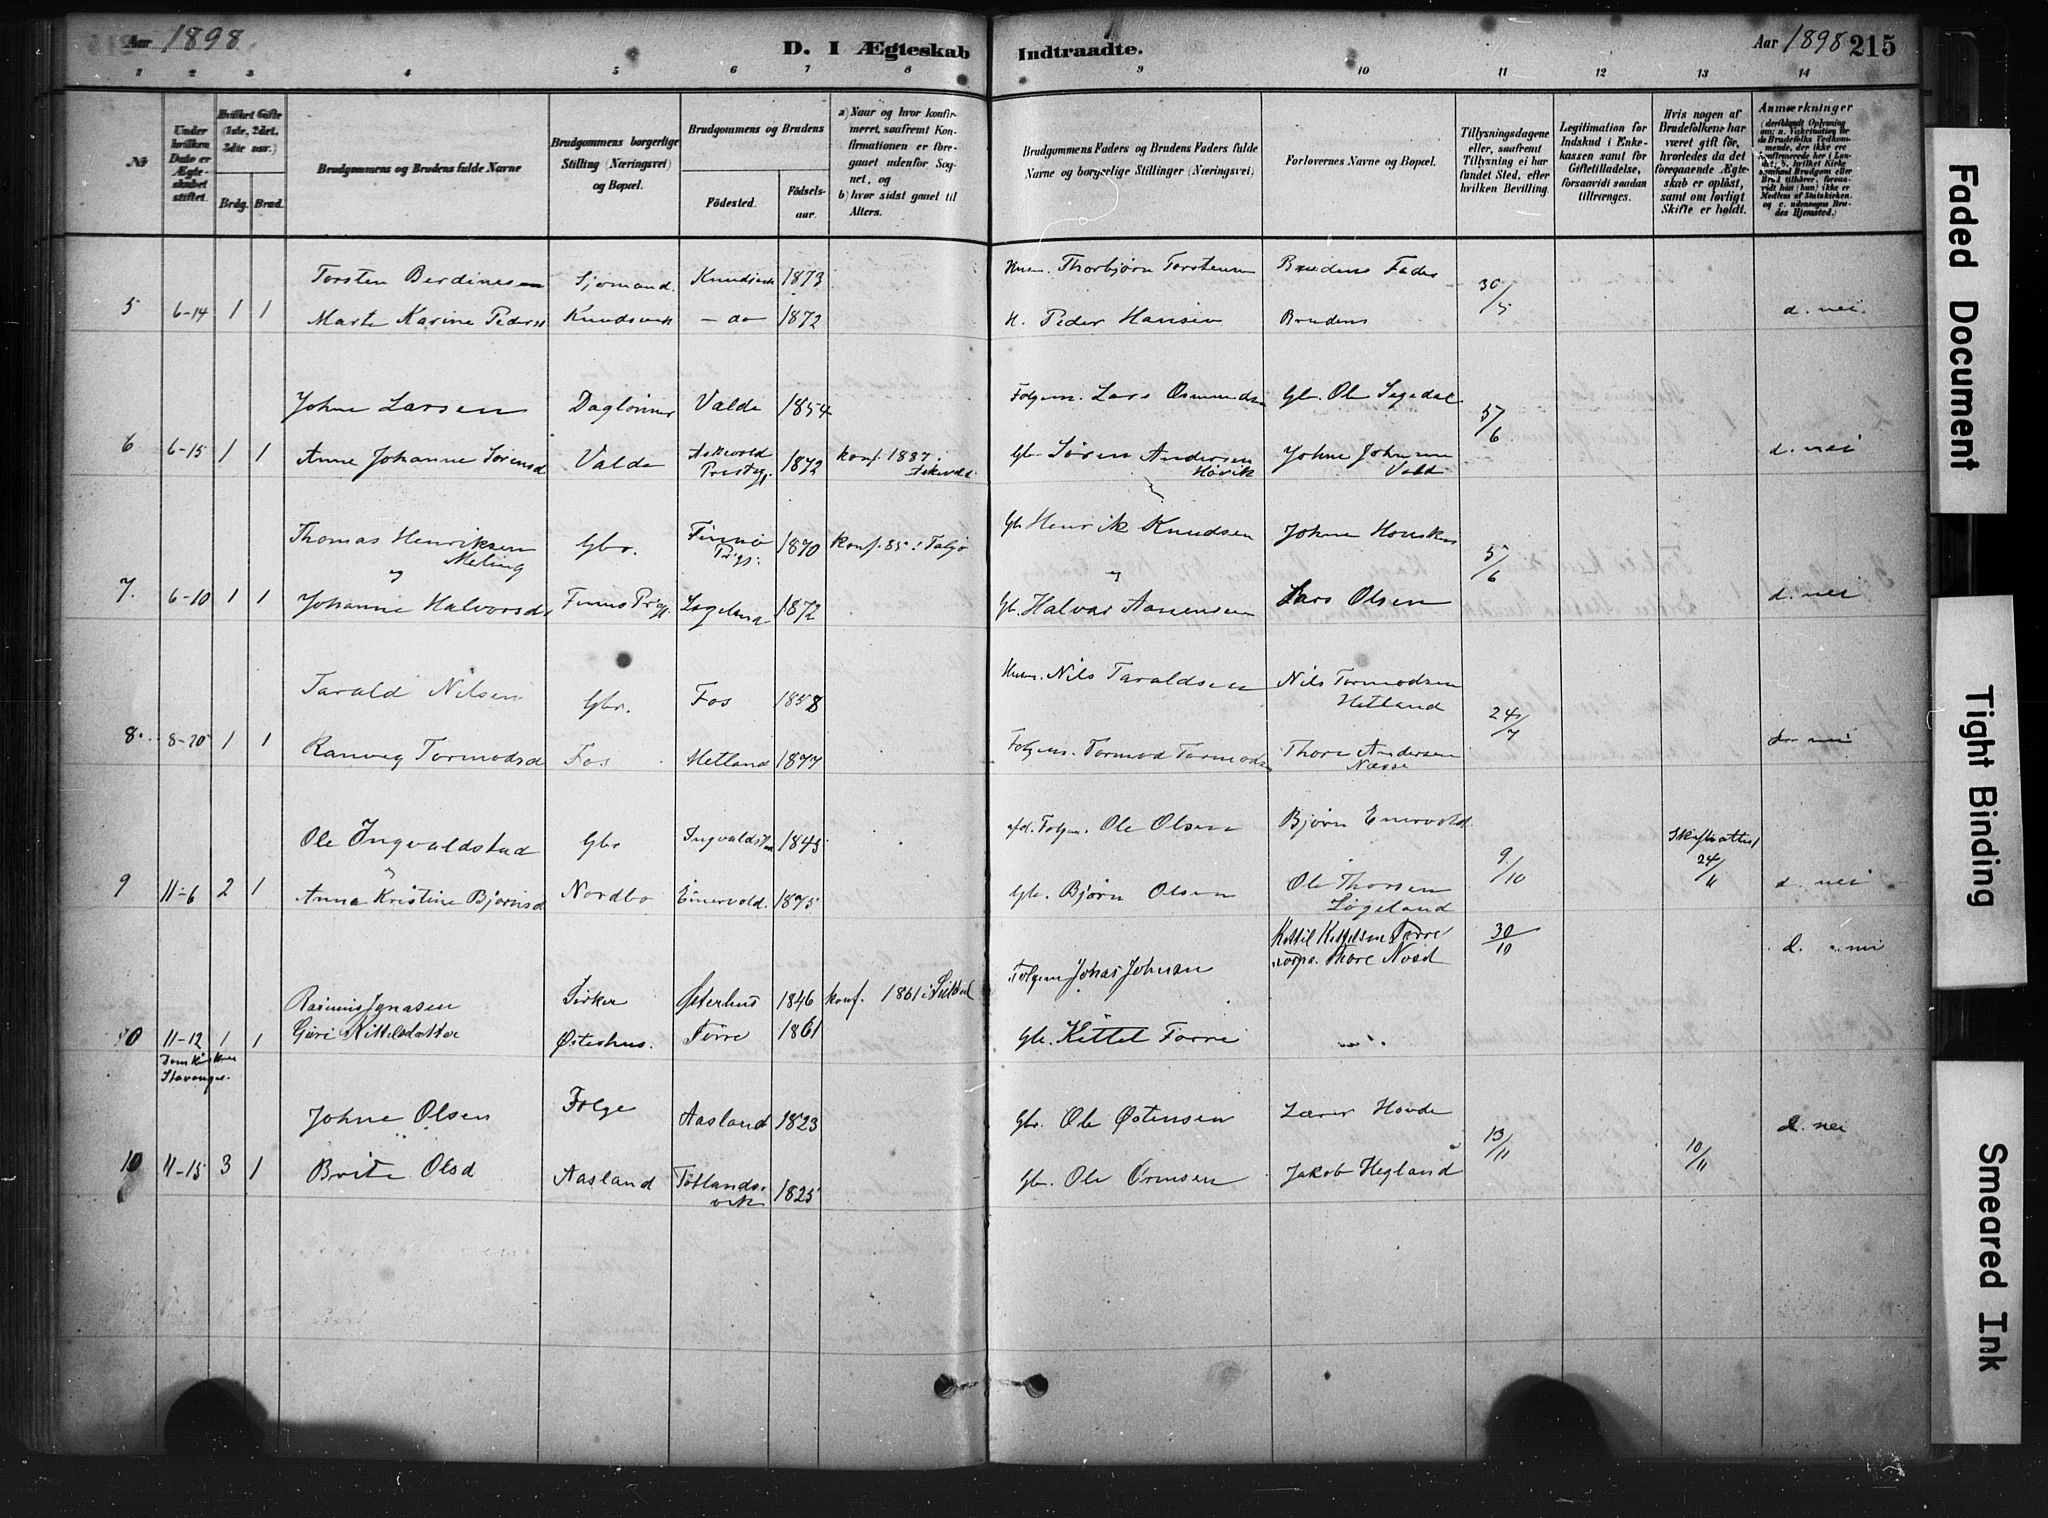 Aar 1898.
D. I Ægteskab Indtraadte.
Aar 1898 215
1 2 3 4 5 6 7 8 9 10 11 12 13 14
№
Under hvilken Dato er Ægteskabet stiftet.
Hvilket Gifte (1ste, 2det, 3die osv.)
Brdg. Brud.
Brudgommens og Brudens fulde Navne
Brudgommens borgerlige Stilling (Næringsvei) og Bopæl.
Brudgommens og Brudens
Födested. Födselsaar.
a) Naar og hvor konfirmeret, saafremt Konfirmationen er foregaaet udenfor Sognet, og
b) hvor sidst gaaet til Alters.
Brudgommens Faders og Brudens Faders fulde Navne og borgerlige Stillinger (Næringsvei)
Forlovernes Navne og Bopæl.
Tillysningsdagene eller, saafremt Tillysning ei har fundet Sted, efter hvilken Bevilling.
Legitimation for Indskud i Enkekassen samt for Giftetilladelse, forsaavidt saadan tiltrænges.
Hvis nogen af Brudefolkene har været gift før, hvorledes da det foregaaende Ægteskab er opløst, samt om lovligt Skifte er holdt.
Anmærkninger
Torsten Berdinesen Sjømand. 1873 Thorbjørn Torstensen Brudens Fader 30/5
5 6-14 1 1 Marta Karine Peders Knudsvik - do 1872 Peder Hansen Brudens d. nei.
Johne Larsen Daglønner Valde 1854 Folgem. Lars Osmundsn Gbr. Ole Segedal 5/6
6 6-15 1 1 Anne Johanne Sørensd Valde Askevold Prestgj. 1872 konf. 1887 i Askevold Gbr Søren Andersen Høvik Johne Johnsen Valde d. nei
Thomas Henriksen Meling Gbr. Finnø Prgj. 1870 konf. 85 i Talgø Gbr Henrik Knudsen Johne 5/6
og
7. 6-10 1 1 Johanne Halvorsdt Finnø Prgj. 1872 Gbr. Halvor Aanensen Lars Olsen d. nei
Tarald Nilsen Gbr. Fos 1858 Husm. Nils Taraldsen Nils Tormodsen Hetland 24/7
8. 8-20 1 1 Ranveg Tormodsd Fos Hetland 1877 Folgem. Tormod Tormodsn Thore Andersen Næsse nei
Ole Ingvaldstad Gbr Ingvaldst 1845 afd. Folgm. Ole Olsen Bjørn Enervold 9/10 Skifteattest 24/11
9 11-6 2 1 Anna Kristine Bjørnsd Nordbo Enervold. 1875 Gbr. Bjørn Olsen Ole Thorsen Løgeland d. nei
Kittil Kittilsen Førre Thore Nord 30/10 d. nei
Rasmus Jonasen Østerhus 1846 konf. 1861 i Folgem Jonas Johnsen
10 11-12 1 1 Guri Kittelsdatter Østerhus. Førre 1861 Gbr. Kittel Førre
Domkirken Stavanger.
Johne Olsen Folge Aasland 1823 Gbr. Ole Østensen Lærer Hovde 13/11 10/11 d. nei
10 11-15 3 1 Brita Olsd Aasland Tøtlandsvik 1825 Gbr. Ole Ormsen Jakob Hegland
Faded Document
Tight Binding
Smeared Ink